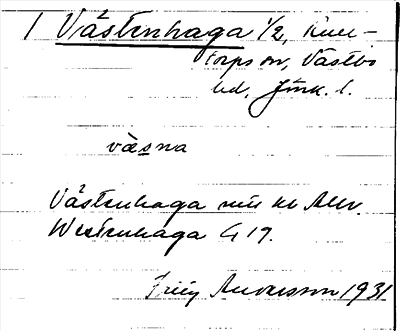 1 Västenhaga 1/2, Kul-
torps sn, Västbo
hd, Jönk. l.
väsna
Västenhaga
Westenhaga G 19.
Andersson 1931